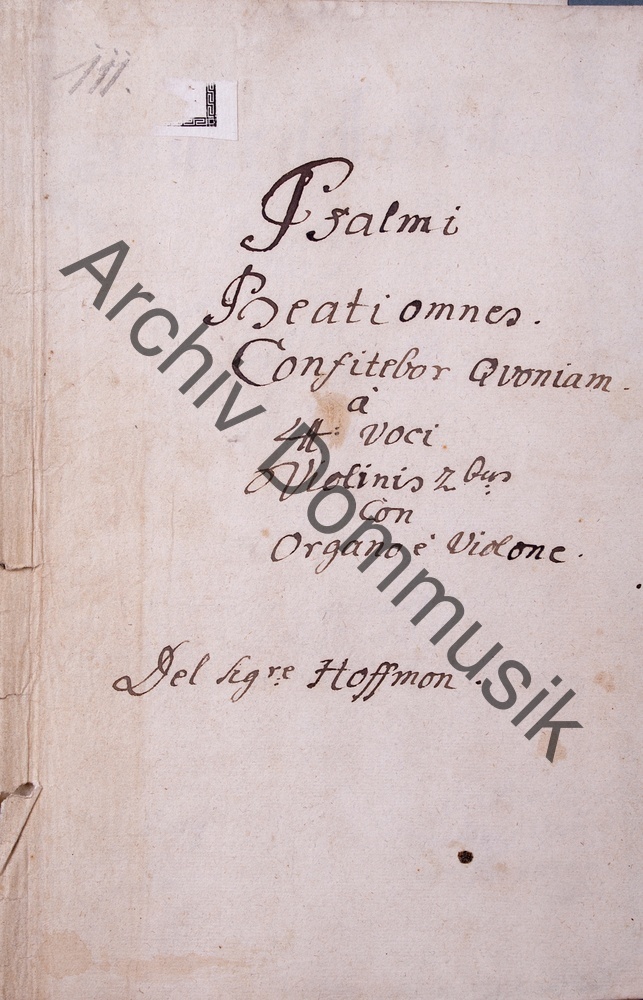 iii.
Psalmi
Beati omnes.
Confitebor Qvoniam.
à
4: Voci
Violinis 2bus
Con
Organo è Violone.
Del Sigre Hoffmon.
Archiv Dommusik